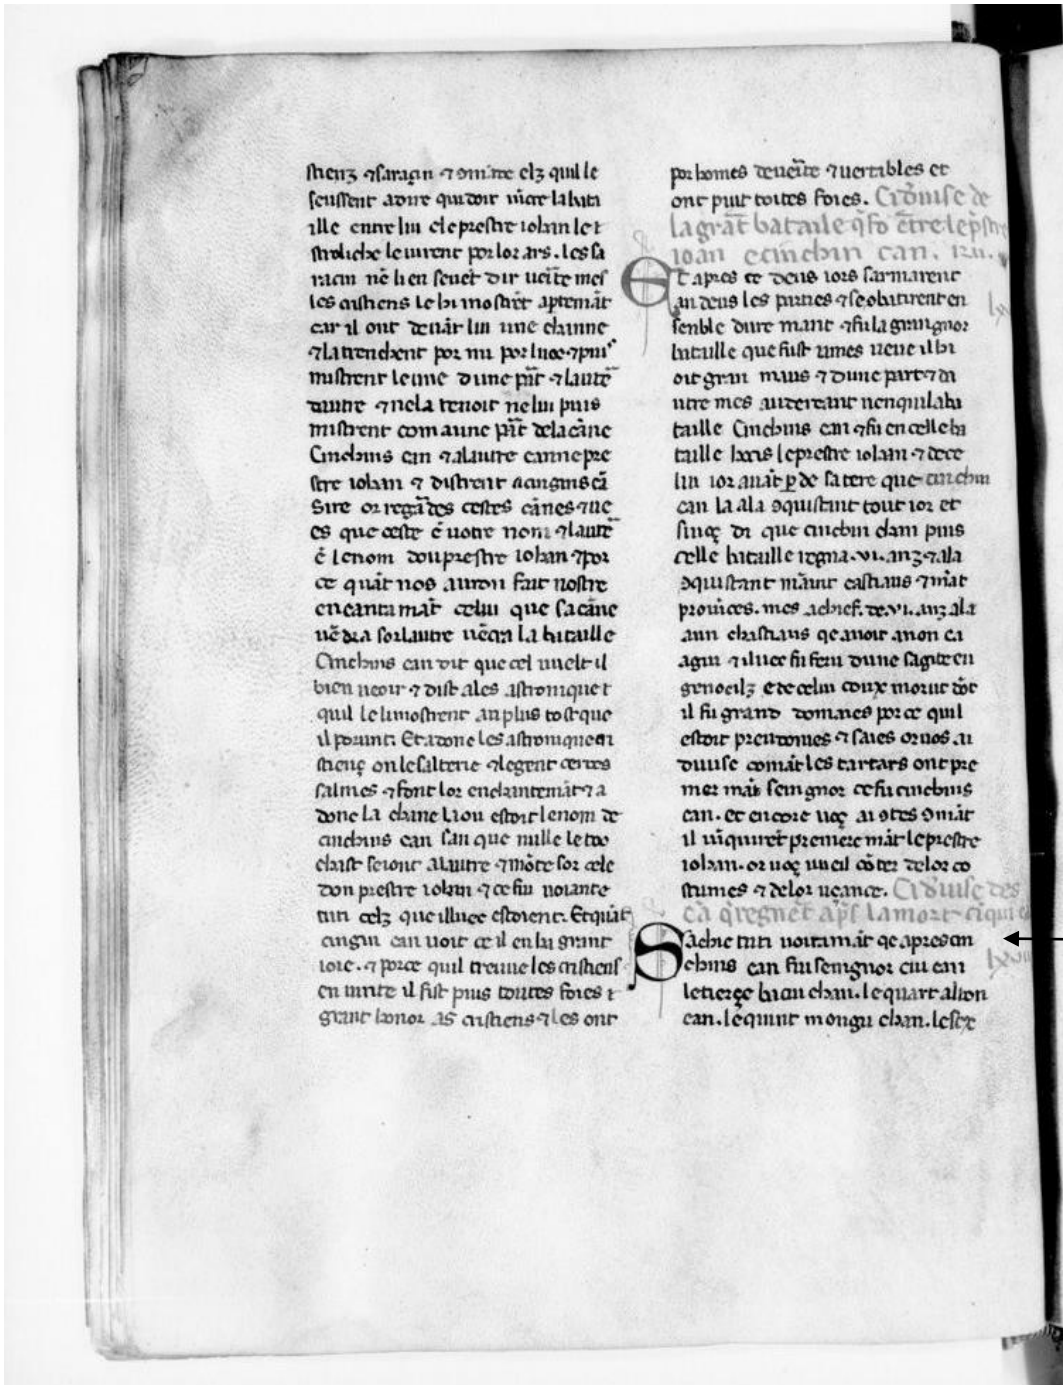 stienz ⁊ saraçin ⁊ 9mãde elz quil le
seussent adire qui doit vicre la bata
ille entre lui e le prestre iohan le t
stroliche le virent por lor ars. les sa
racin nē li en seuēt dir ueritē mes
les cristiens le hi mostrēt apertemāt
car il ont deuāt lui une channe
⁊ la trenchent por mi por luoc ⁊ puis
mistrent le une dune part ⁊ lautre
dautre ⁊ ne la tenoit nelui puis
mistrent com a une pārt de la cāne
Cinchins can ⁊ a lautre canne pre
stre iohan ⁊ distrent a cingins cā
Sire or regardes cestes cānes ⁊ ue
es que ceste ē uotre nom ⁊ lautre
ē le nom dou prestre iohan ⁊ por
ce quāt nos auron fait nostre
encantamāt celui que sa cāne
uēdra sor lautre uēcra la bataille
Cinchins can dit que cel uuelt il
bien ueoir ⁊ dist a les astronique t
quil le li mostrent au plus tost que
il porunt. Et adone les astronique cri
stienç on le salterie ⁊ legent certes
salmes ⁊ font lor enchantemāt ⁊ a
done la chane la ou estoit le nom de
cinchins can san que nulle le toc
chast se iont a lautre ⁊ mōte sor cele
don prestre iohan ⁊ ce fiu uoiante
tuti celz que illuec estoient. Et quāt
cingin can uoit ce il en ha grant
ioie. ⁊ porce quil treuue les cristiens
en uirite il fist puis toutes foies t
grant honor as cristiens ⁊ les ont
por homes de ueritē ⁊ uertables et
ont puit toites foies. Ci deuise de
la grāt bataile q̄ fo ētre le p̄stre
ioan e cinchin can.
Et apres ce deus iors sarmarent
an deus les parties ⁊ se obatirent en
senble dure mant ⁊ fu la graingnor
bataille que fust iames ueue il hi
oit gran maus ⁊ dune part ⁊ da
utre mes au dereant uenqui la ba
taille Cinchins can ⁊ fu en celle ba
taille hocis le prestre iohan ⁊ de ce
lui ior auāt ꝑde sa tere que cinchin
can la ala 9quistant tout ior et
sinoç di que cinchin chan puis
celle bataille regna .vi. anz ⁊ ala
9quistant māint castiaus ⁊ māt
prouīces. mes achief. de .vi. anz ala
a un chastiaus qe auoit a non ca
agiu ⁊ iluec fu feru dune sagite en
genoeilz e de celui coux morut dōt
il fu grand domaies por ce quil
estoit preudomes ⁊ saies or uos ai
diuise comāt les tartars ont pre
mer mās seingnor ce fu cinchins
can. et encore uoç ai 9tes 9māt
il uīquiret premere māt le prestre
iohan. or uoç uueil cōter de lor co
stumes ⁊ de lor uçance. Ci deuise des
cā q̄ regnēt ap̄s la mort ciqui c
Sachie tuti uoiramāt qe apres cin
chins can fiu seingnor cui can
le tierçe bacui chan. le quart alton
can. le quint mongu chan. le sex